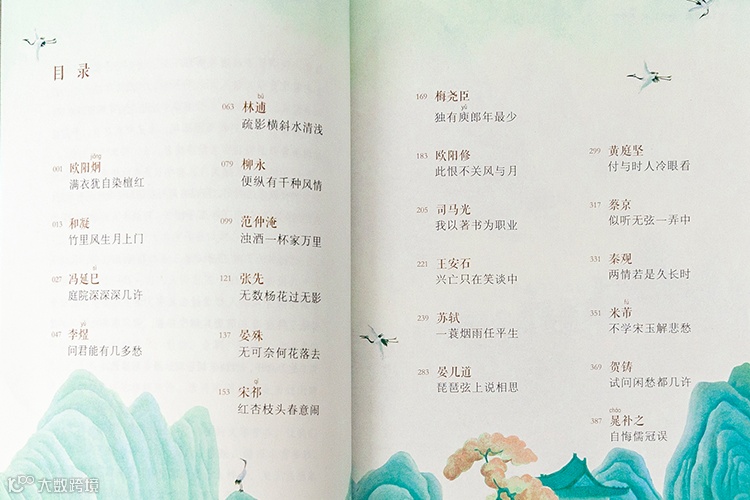 目录
001 欧阳炯 jiǒng
满衣犹自染檀红
013 和凝
竹里风生月上门
027 冯延巳 sì
庭院深深深几许
047 李煜 yù
问君能有几多愁
063 林逋 bū
疏影横斜水清浅
079 柳永
便纵有千种风情
099 范仲淹
浊酒一杯家万里
121 张先
无数杨花过无影
137 晏殊
无可奈何花落去
153 宋祁 qí
红杏枝头春意闹
169 梅尧臣
独有庾郎年最少 yǔ
183 欧阳修
此恨不关风与月
205 司马光
我以著书为职业
221 王安石
兴亡只在笑谈中
239 苏轼
一蓑烟雨任平生
283 晏几道
琵琶弦上说相思
299 黄庭坚
付与时人冷眼看
317 蔡京
似听无弦一弄中
331 秦观
两情若是久长时
351 米芾 fú
不学宋玉解悲愁
369 贺铸
试问闲愁都几许
387 晁补之 cháo
自悔儒冠误
大数跨境